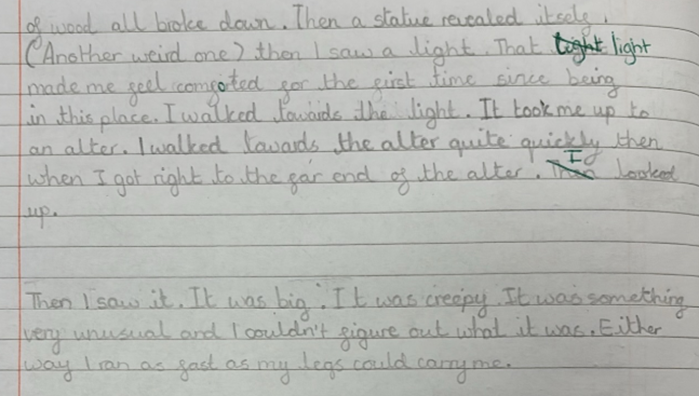 of wood all broke down. Then a statue revealed itself.
(Another weird one) then I saw a light. That light light
made me feel comfoted for the first time since being
in this place. I walked towards the light. It took me up to
an alter. I walked towards the alter quite quickly then
when I got right to the far end of the alter. I looked
up.
Then I saw it. It was big. It was creepy. It was something
very unusual and I couldn't figure out what it was. Either
way I ran as fast as my legs could carry me.